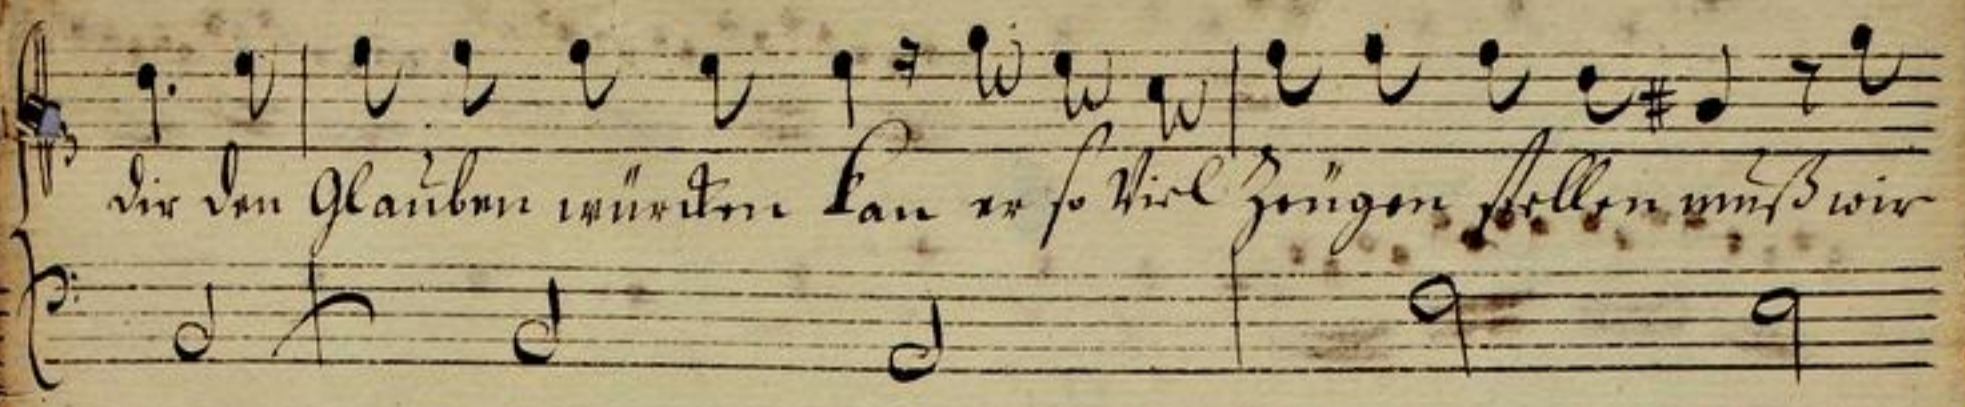 dir den Glauben würcken kan er so Viel Zeugen stellen muß wir